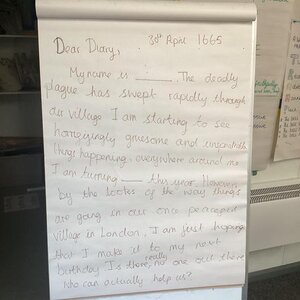 30th April 1665
Dear Diary,
My name is ______. The deadly
plague has swept rapidly through
our village I am starting to see
horrifyingly gruesome and
things happening everywhere around me
I am turning ___ this year. However
by the looks of the way things
are going in our once peaceful
village in London, I am just hoping
that I make it to my next
birthday Is there really no one out there
who can actually help us?